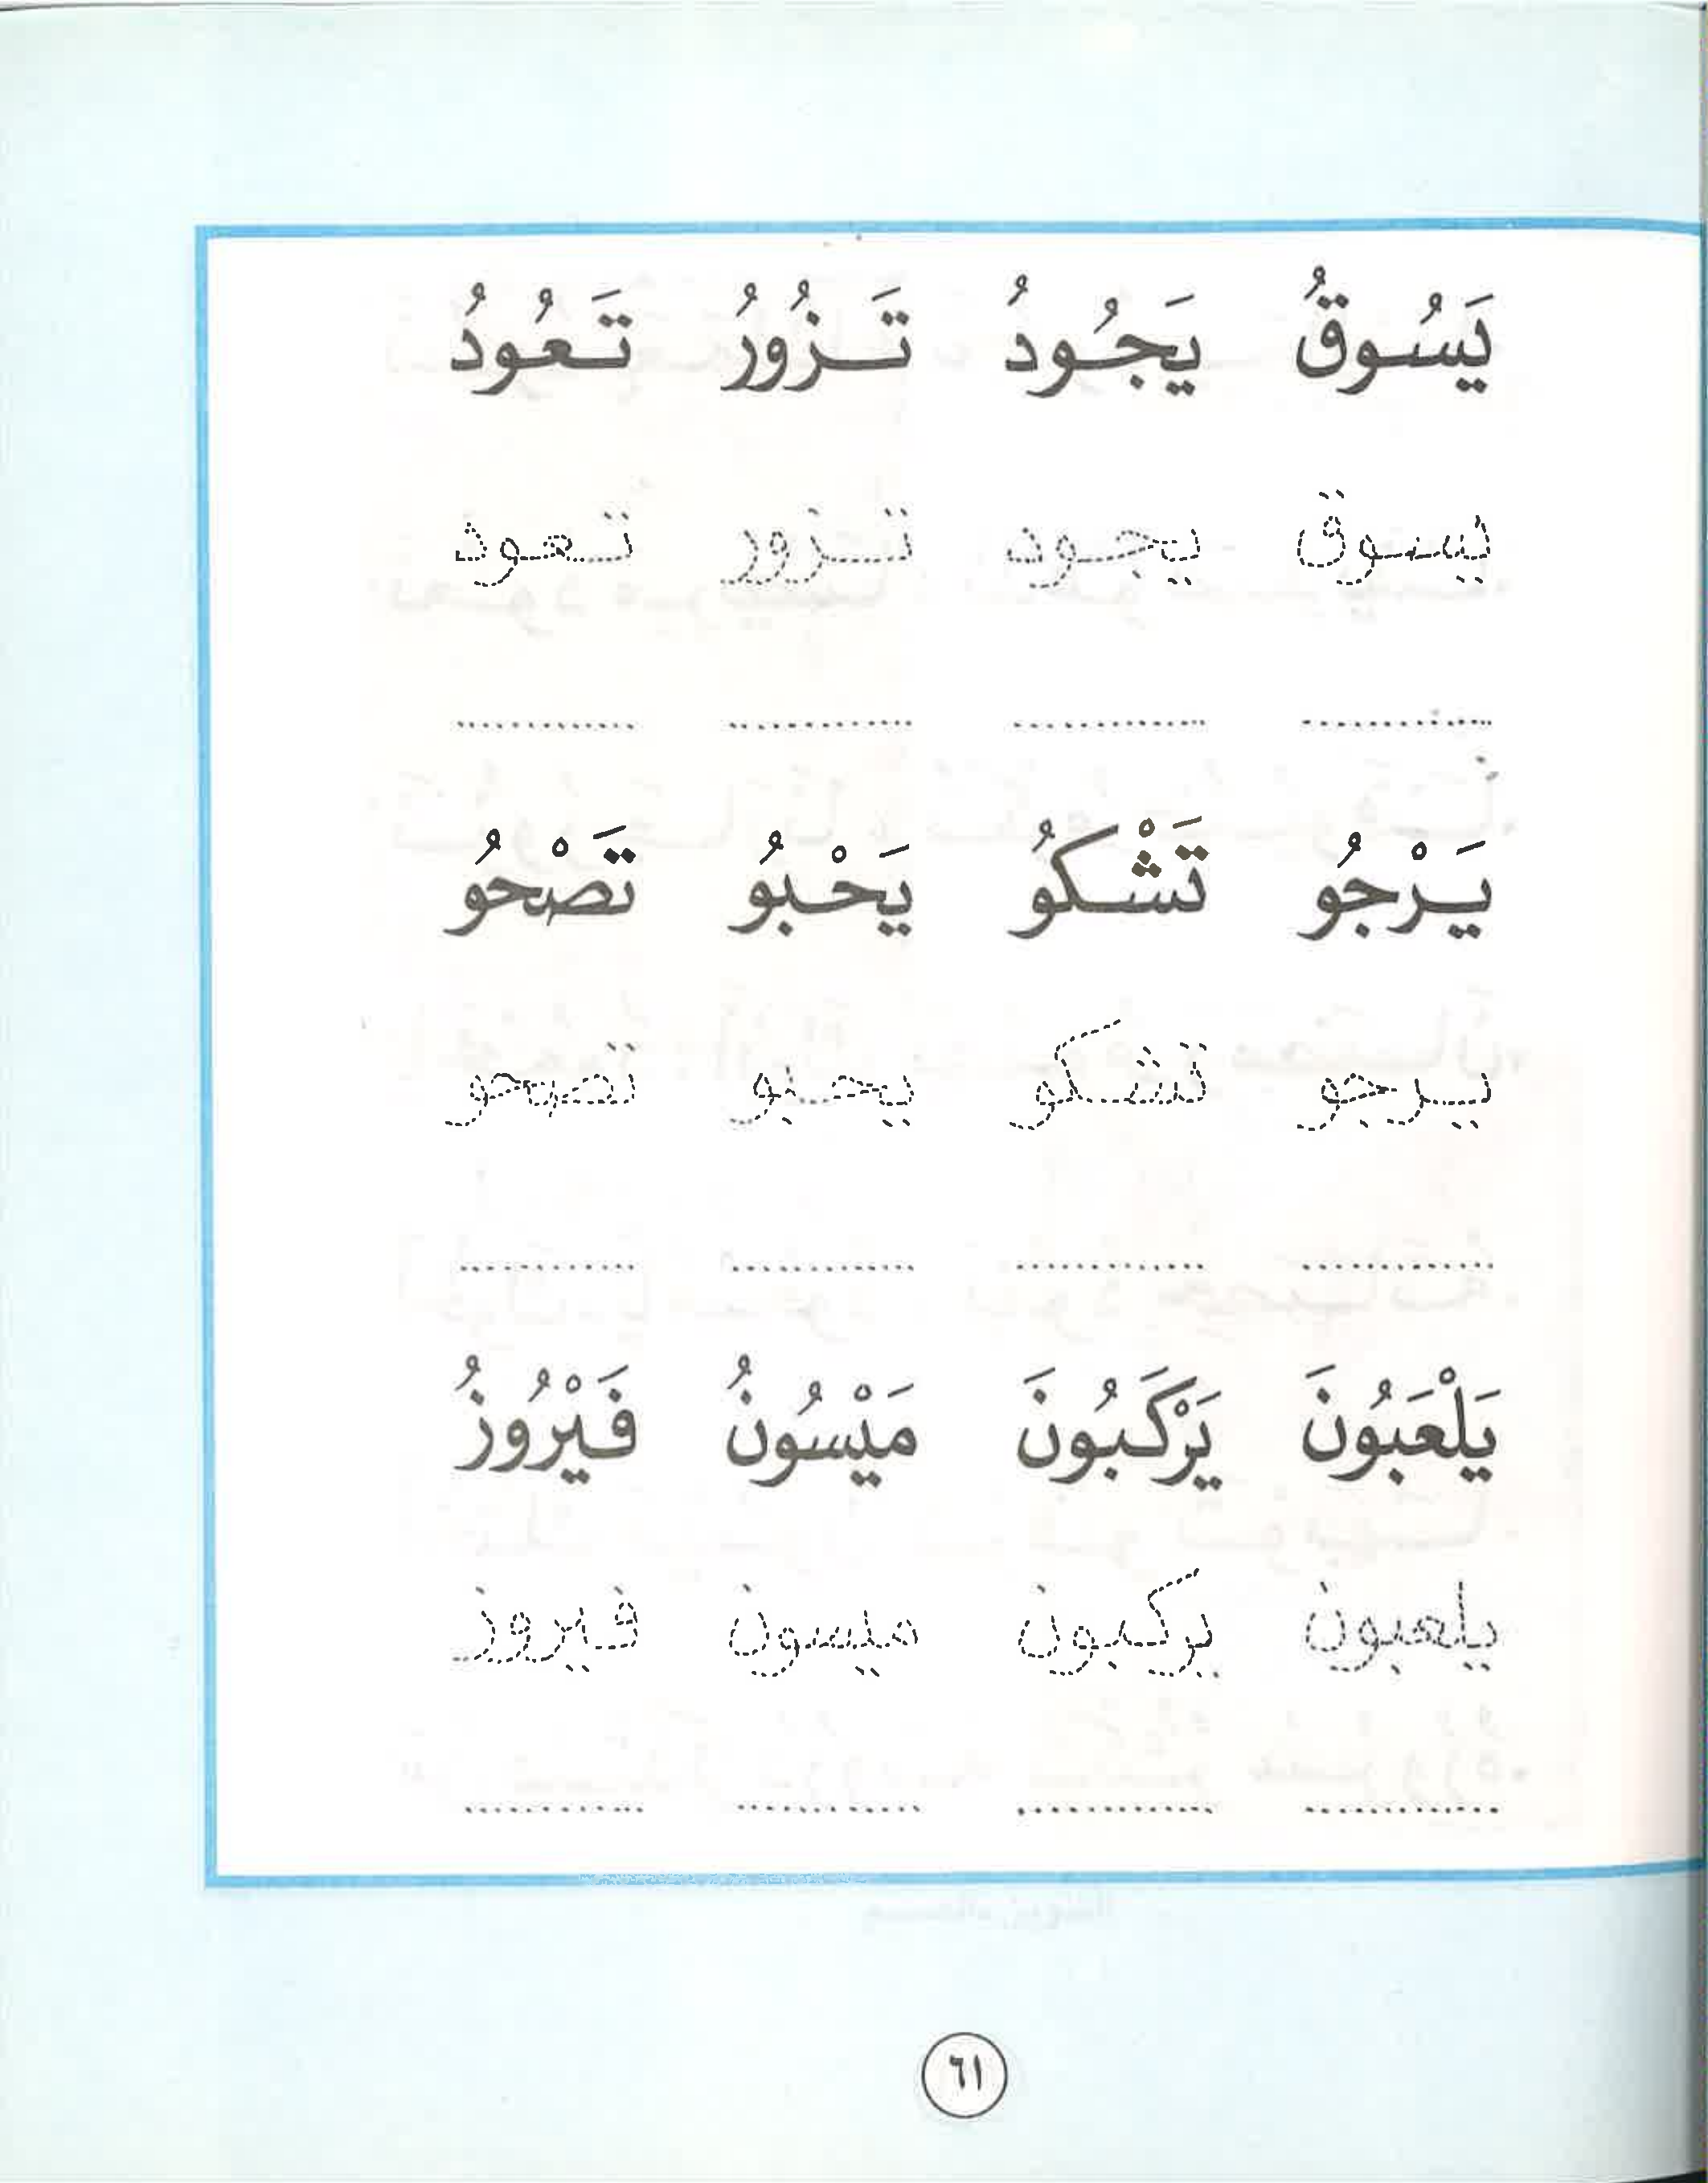 يَسُوقُ يَجُودُ تَـزُورُ تَـعُودُ
يسوق يجود تـزور تـعود
يَـرْجُو تَشْـكُو يَحْـبُو تَصْحُو
يـرجو تشـكو يحـبو تصحو
يَلْعَبُونَ يَرْكَبُونَ مَيْسُونُ فَيْرُوزُ
يلعبون يركبون ميسون فيروز
٦١